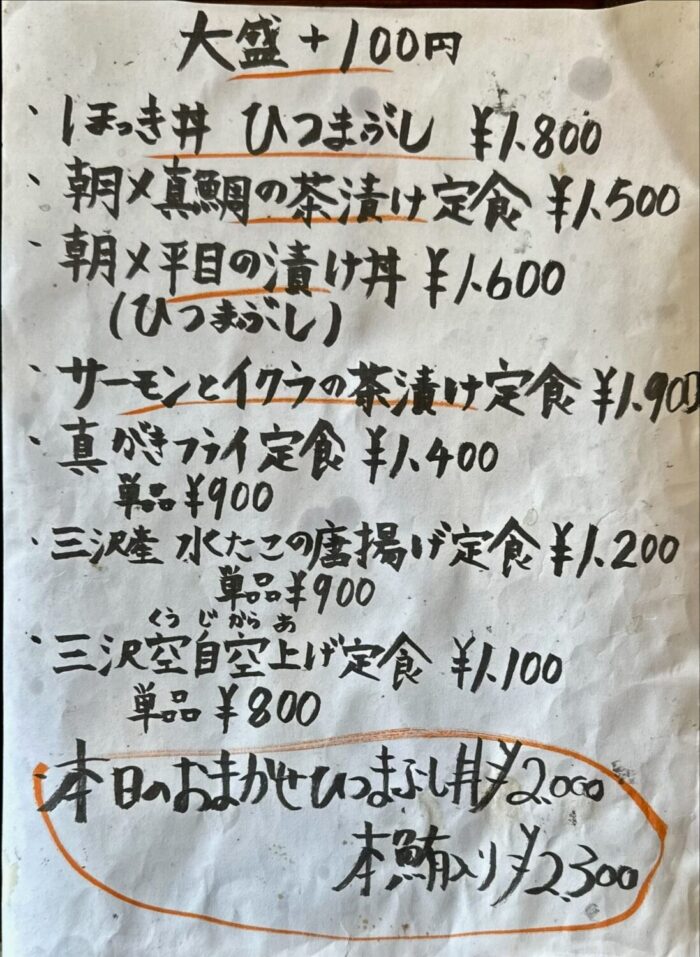 大盛+100円
・ほっき丼 ひつまぶし ¥1.800
・朝〆真鯛の茶漬け定食 ¥1.500
・朝〆平目の漬け丼 ¥1.600
(ひつまぶし)
・サーモンとイクラの茶漬け定食 ¥1.900
・真がきフライ定食 ¥1.400
単品¥900
・三沢産 水たこの唐揚げ定食 ¥1.200
単品¥900
くうじからあ
・三沢空自空上げ定食 ¥1.100
単品 ¥800
・本日のおまかせひつまぶし丼¥2.000
本鮪入り¥2.300